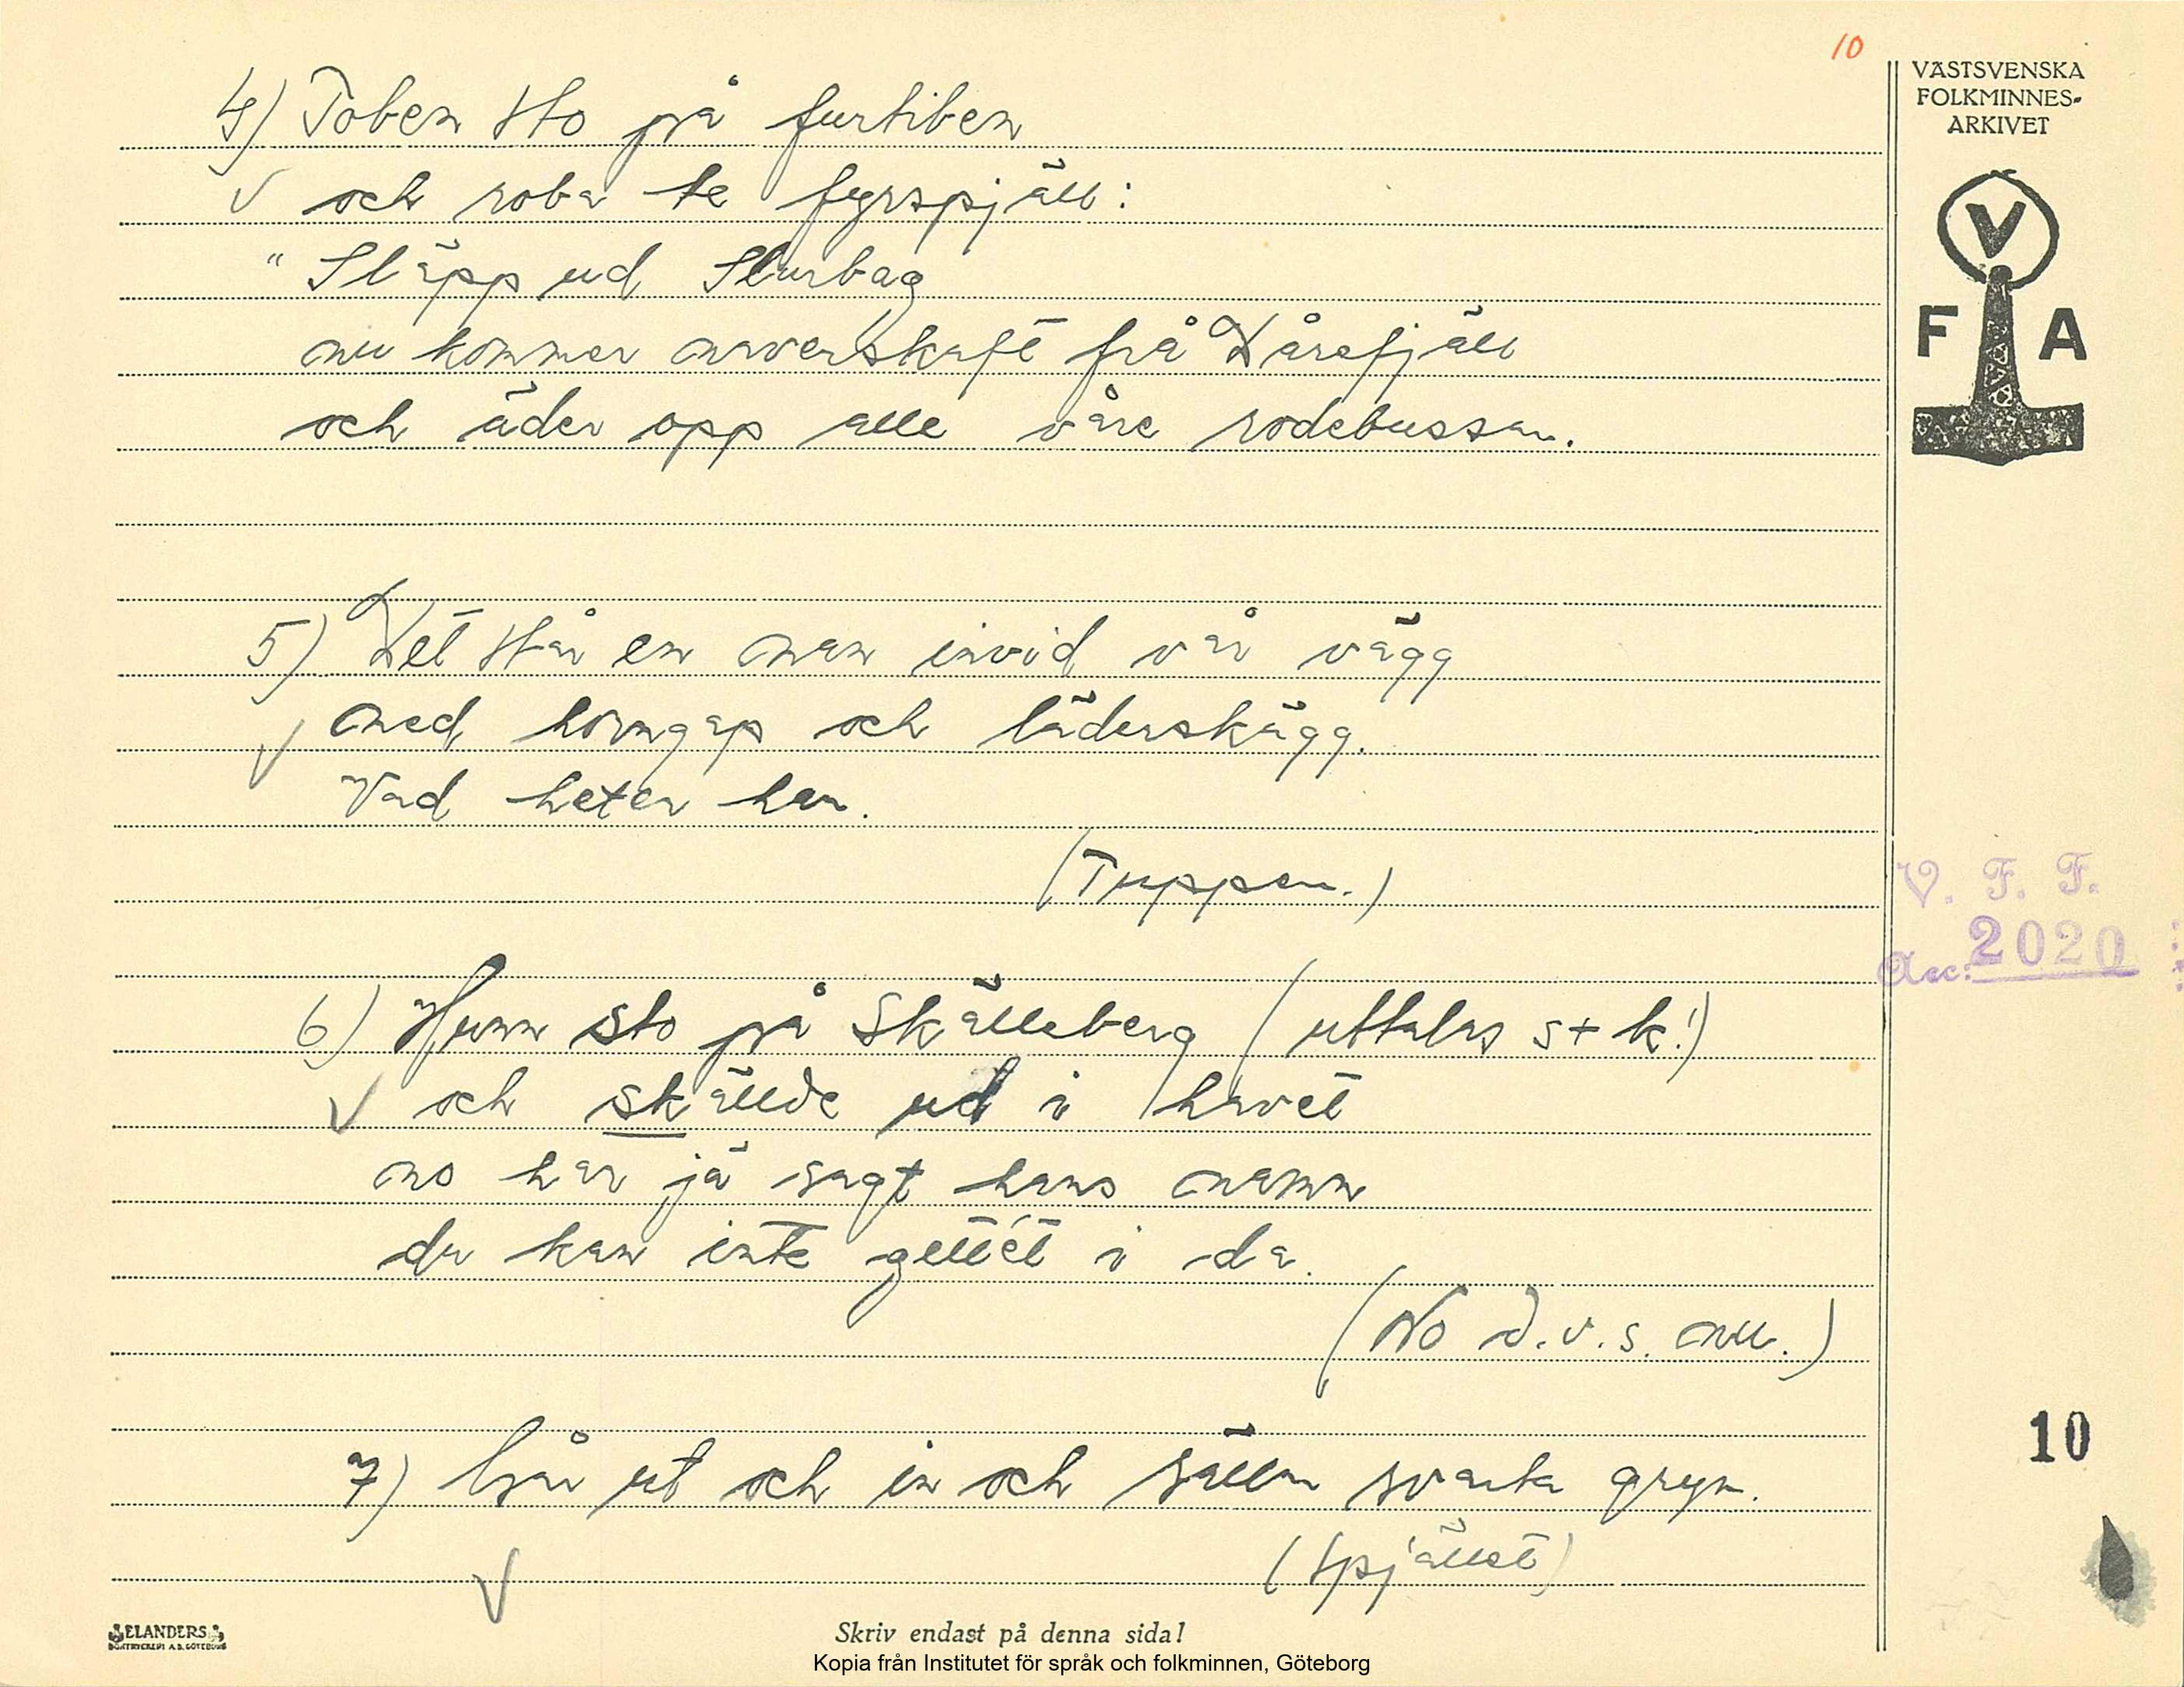 10
VÄSTSVENSKA
FOLKMINNES-
ARKIVET
V
F A
4) Toben sto på furtiben
och roba te fyrspjäll:
"Släpp ud Slurbag
nu kommer naverskaft frå Dårefjäll
och äder opp alle våre rodebussar.
5) Det står en man invid vår vägg
med horngap och läderskägg.
Vad heter han.
(Tuppen.)
V. F. F.
Acc: 2020
6) Hunn sto på Skälleberg (uttalas s+k!)
och skällde ud i havet
no har jä sagt hans namn
du kan inte gettet i da.
(No d.v.s. nu.)
10
7) Går ut och in och sålla svarta gryn.
(Spjället)
ELANDERS
BOKTRYCKERI A.B. GÖTEBORG
Skriv endast på denna sida!
Kopia från Institutet för språk och folkminnen, Göteborg